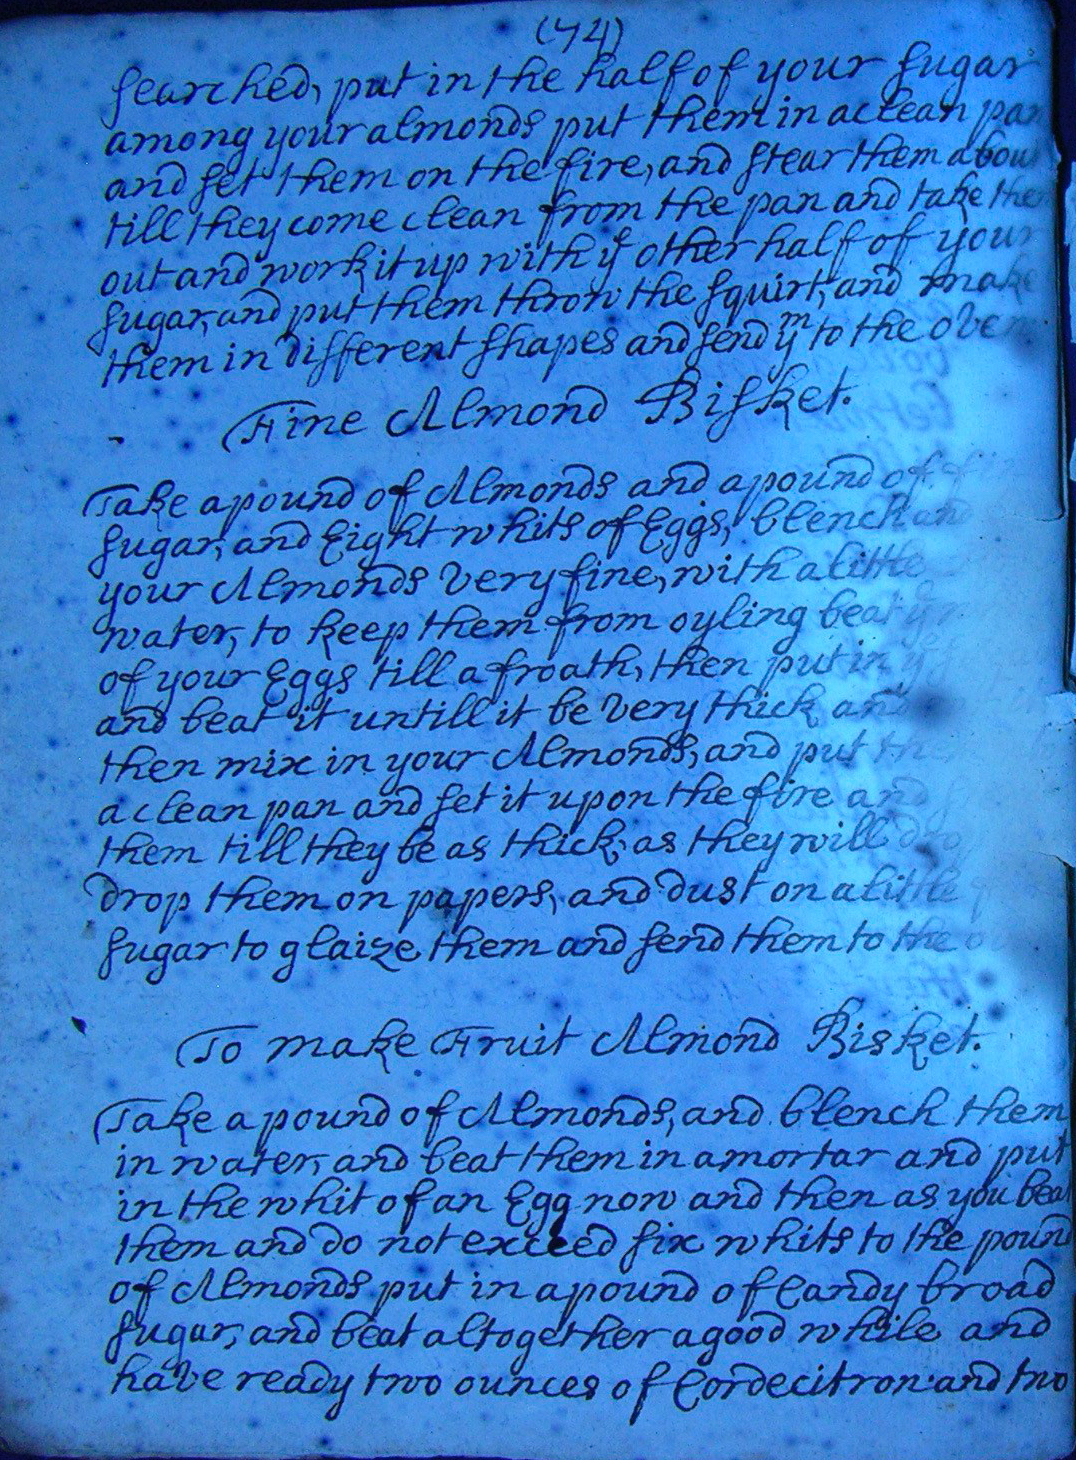 (74)
searched, put in the half of your sugar
among your almonds put them in a clean pan
and set them on the fire, and stear them about
till they come clean from the pan and take them
out and work it up with yͤ other half of your
sugar, and put them throw the squirt, and make
them in different shapes and send yᵐ to the oven
Fine Almond Bisket.
Take a pound of Almonds and a pound of fin
sugar, and Eight whits of Eggs, blench and
your Almonds very fine, with a little
water, to keep them from oyling beat yͤ
of your Eggs till a froath, then put in yͤ
and beat it untill it be very thick and
then mix in your Almonds, and put
a clean pan and set it upon the fire and
them till they be as thick as they will drop
drop them on papers, and dust on a little
sugar to glaize them and send them to the
To make Fruit Almond Bisket.
Take a pound of Almonds, and blench them
in water, and beat them in a mortar and put
in the whit of an Egg now and then as you beat
them and do not exceed six whits to the pound
of Almonds put in a pound of Candy broad
sugar, and beat altogether a good while and
have ready two ounces of Cordecitron and two